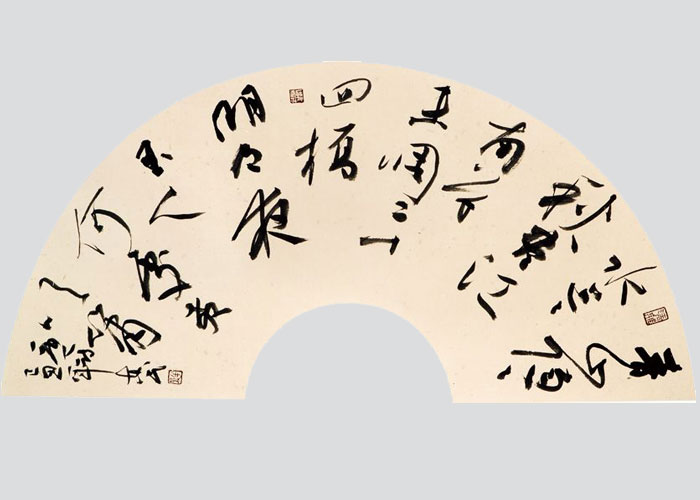 青山隐
水迢
秋尽江
南草
未凋二十
四桥
明月夜
玉人
何处教
吹箫